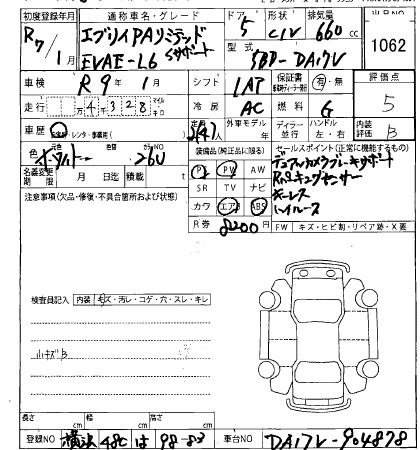 初度登録年月 通称車名・グレード ドア 形状 排気量
R7/1月 エブリイPAリミテッド 5 CIV 660 cc
EVAE-L6 Sサポート 型式 3BD-DA17V 1062
車検 R9年1月 シフト LAT 保証書 有・無 評価点
走行 万4千328 マイル キロ 冷房 AC 燃料 G 5
車歴 レンタ・事業用( 定員 外車モデル ディーラー 並行 ハンドル 左・右 内装 評価 B
色 元色 色替 カラーNO 26U 装備品(純正品に限る) セールスポイント(正常に機能するもの)
名義変更期限 月 日迄 積載 t PS PW AW デュアルカメラブレーキサポート
注意事項(欠品・修復・不具合箇所および状態) SR TV ナビ
キーレス
カワ エアB ABS ハイルーフ
R券 8200円 FW キズ・ヒビ割・リペア跡・X要
検査員記入 内装 キズ・汚レ・コゲ・穴・スレ・キレ
小キズB
長さ cm 幅 cm 高さ cm
登録NO 横浜 480 は 98-83 車台NO DA17V-904878